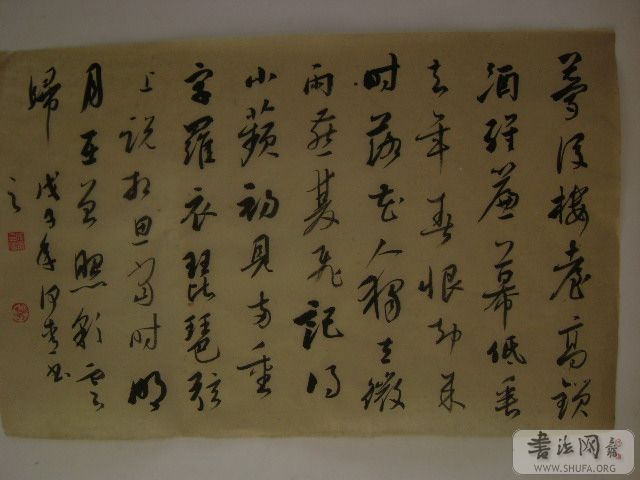 夢後樓臺高鎖
酒醒簾幕低垂
去年春恨却来
时落花人獨立微
雨燕双飞記得
小蘋初見兩重心
字羅衣琵琶弦
上说相思當时明
月在曾照彩雲
歸 戊子年
書法网
WWW.SHUFA.ORG